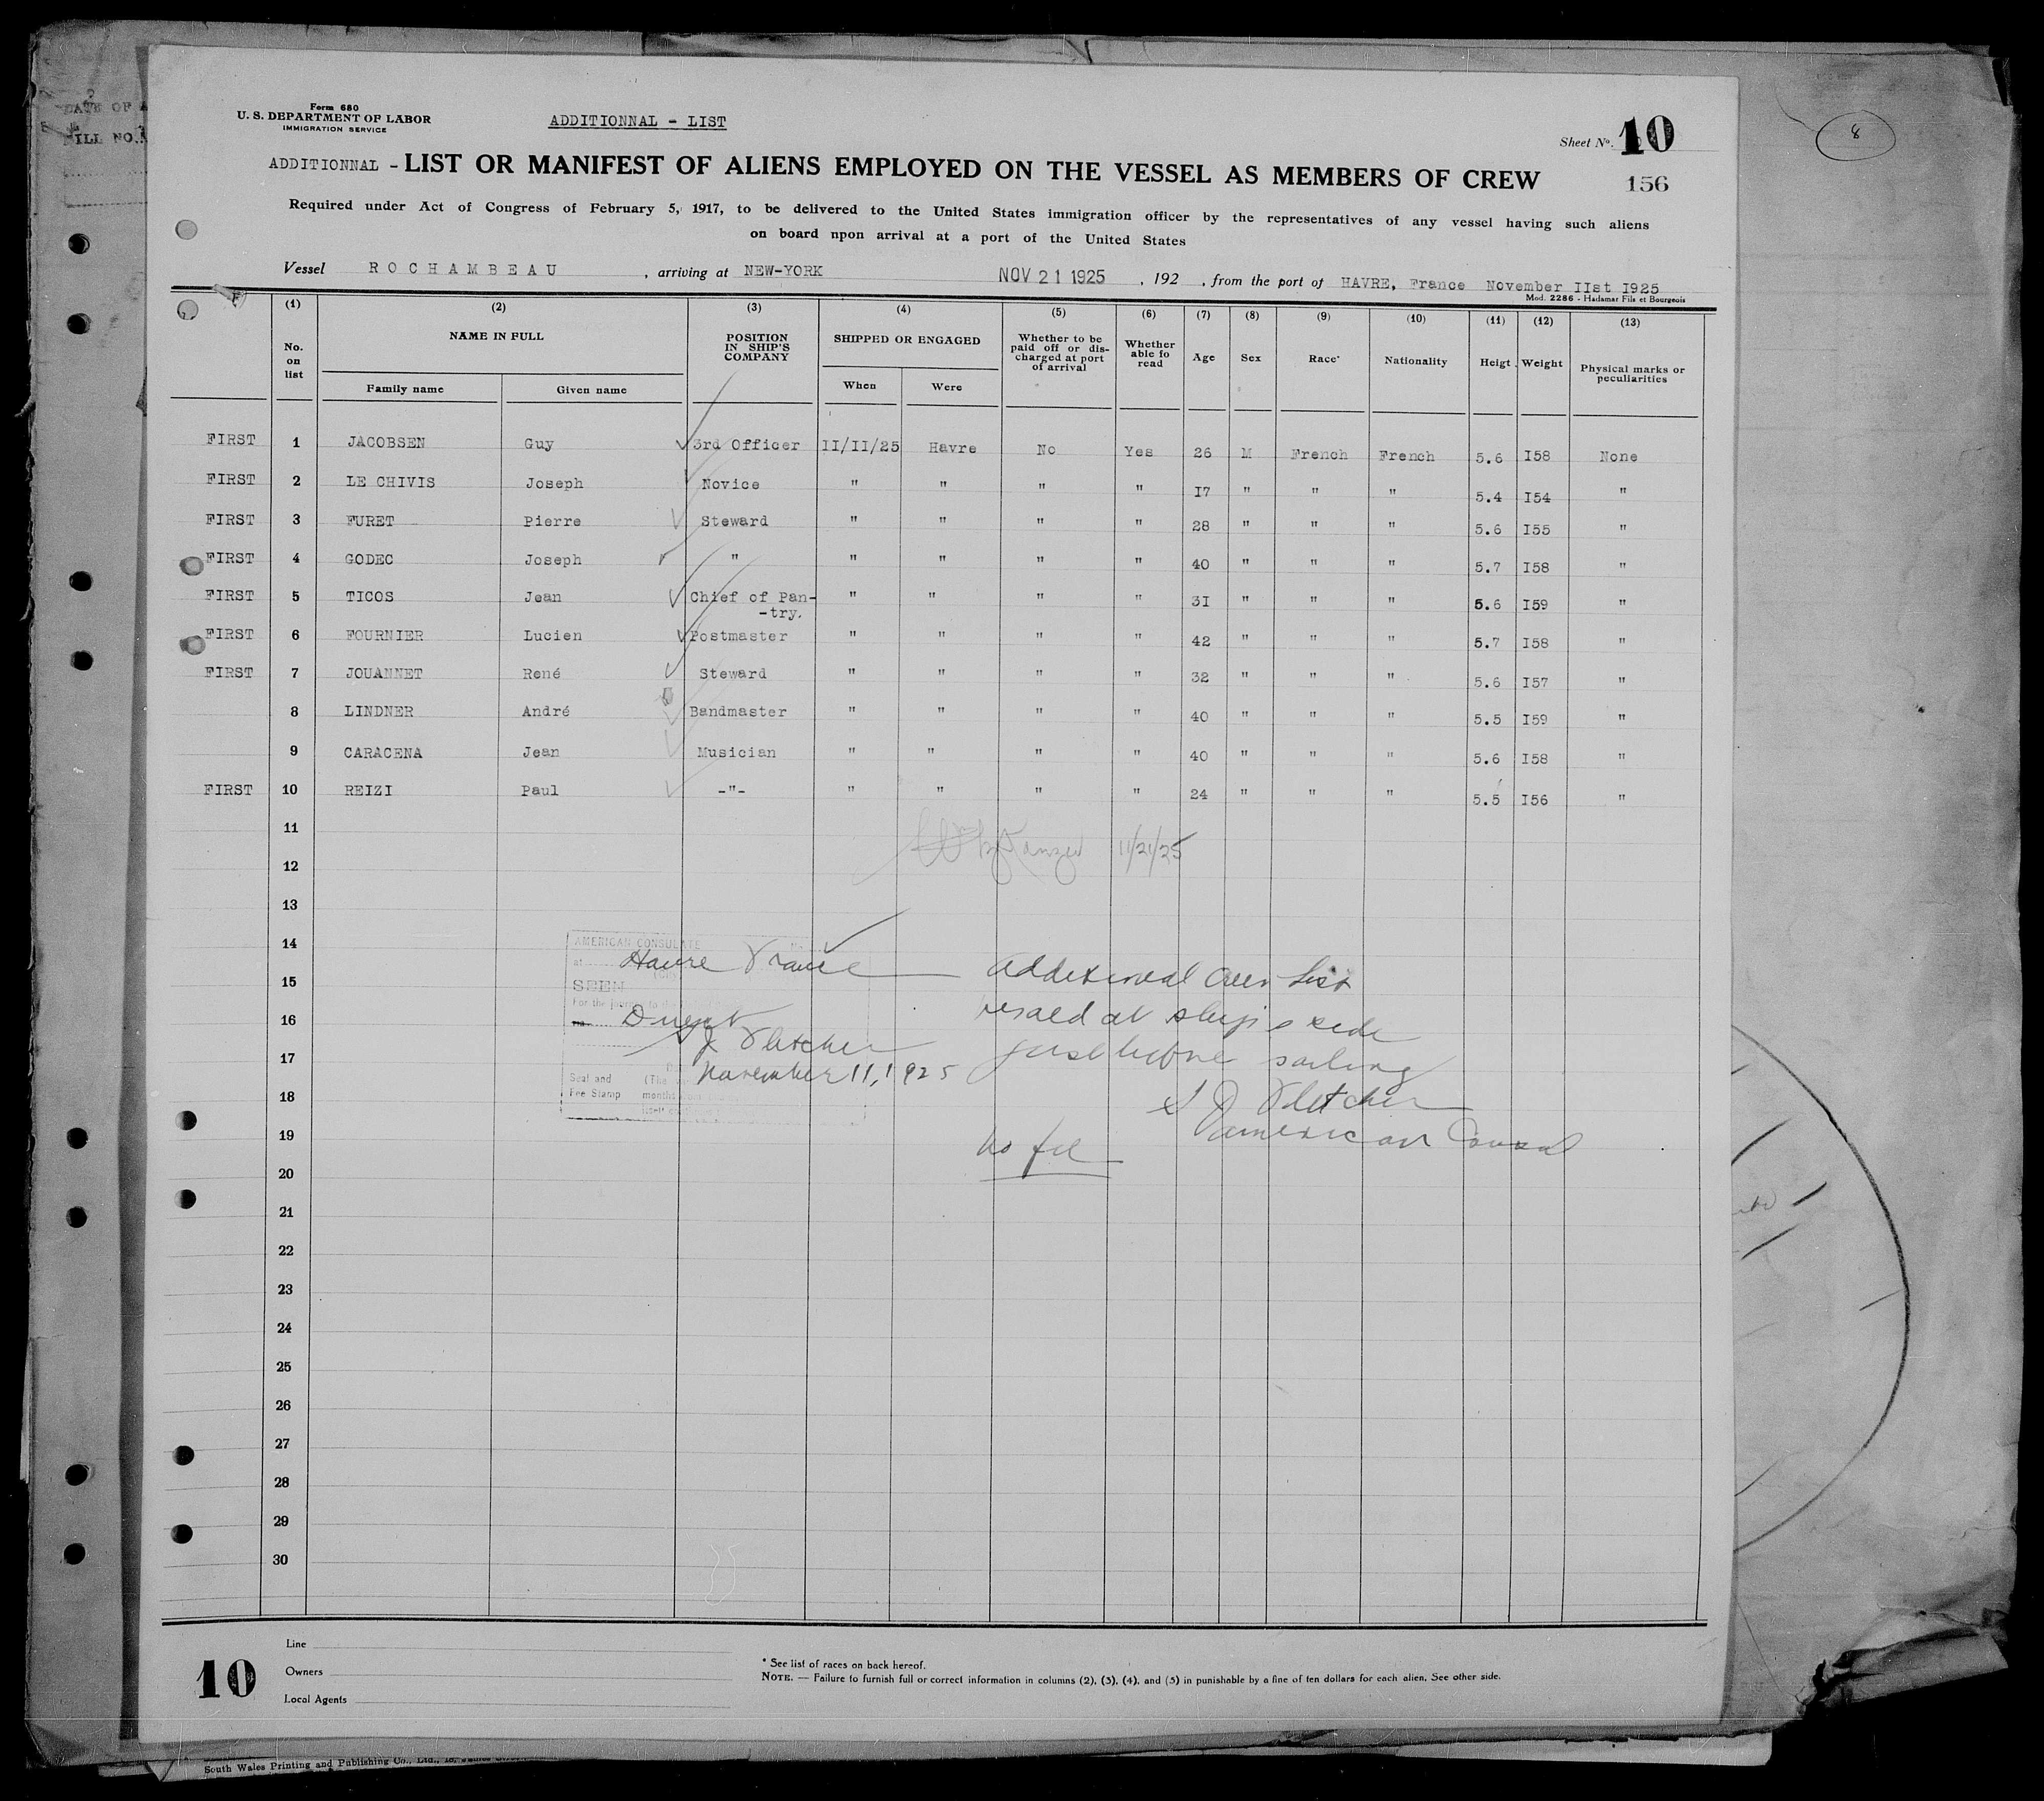 DATE OF
FILL NO.
Form 680
U. S. DEPARTMENT OF LABOR
IMMIGRATION SERVICE
ADDITIONNAL - LIST
Sheet No. 10
8
ADDITIONNAL - LIST OR MANIFEST OF ALIENS EMPLOYED ON THE VESSEL AS MEMBERS OF CREW
156
Required under Act of Congress of February 5, 1917, to be delivered to the United States immigration officer by the representatives of any vessel having such aliens
on board npon arrival at a port of the United States
Vessel ROCHAMBEAU , arriving at NEW-YORK NOV 21 1925 , 192 , from the port of HAVRE, France November IIst I925
Mod. 2286 - Hadamar Fils et Bourgeois
(1) (2) (3) (4) (5) (6) (7) (8) (9) (10) (11) (12) (13)
No. on list NAME IN FULL POSITION IN SHIP'S COMPANY SHIPPED OR ENGAGED Whether to be paid off or dis-charged at port of arrival Whether able fo read Age Sex Race* Nationality Heigt. Weight Physical marks or peculiarities
Family name Given name When Were
FIRST 1 JACOBSEN Guy 3rd Officer II/II/25 Havre No Yes 26 M French French 5.6 I58 None
FIRST 2 LE CHIVIS Joseph Novice " " " " I7 " " " 5.4 I54 "
FIRST 3 FURET Pierre Steward " " " " 28 " " " 5.6 I55 "
FIRST 4 GODEC Joseph " " " " " 40 " " " 5.7 I58 "
FIRST 5 TICOS Jean Chief of Pan- " " " " 3I " " " 5.6 I59 "
-try.
FIRST 6 FOURNIER Lucien Postmaster " " " " 42 " " " 5.7 I58 "
FIRST 7 JOUANNET René Steward " " " " 32 " " " 5.6 I57 "
8 LINDNER André Bandmaster " " " " 40 " " " 5.5 I59 "
9 CARACENA Jean Musician " " " " 40 " " " 5.6 I58 "
FIRST 10 REIZI Paul -"- " " " " 24 " " " 5.5 I56 "
11
11/21/25
12
13
14
AMERICAN CONSULATE No.
at Havre France
Additional Crew List
15
SEEN
For the journey to the
16
visaed at ship's side
J Fletcher
17
just before sailing
November 11, 1925
Seal and (The
Fee Stamp months
18
S J Fletcher
19
American Consul
No fee
20
21
22
23
24
25
26
27
28
29
30
10
Line
Owners
Local Agents
* See list of races on back hereof.
NOTE. — Failure to furnish full or correct information in columns (2), (3), (4), and (5) in punishable by a fine of ten dollars for each alien. See other side.
South Wales Printing and Publishing Co., Ltd.,